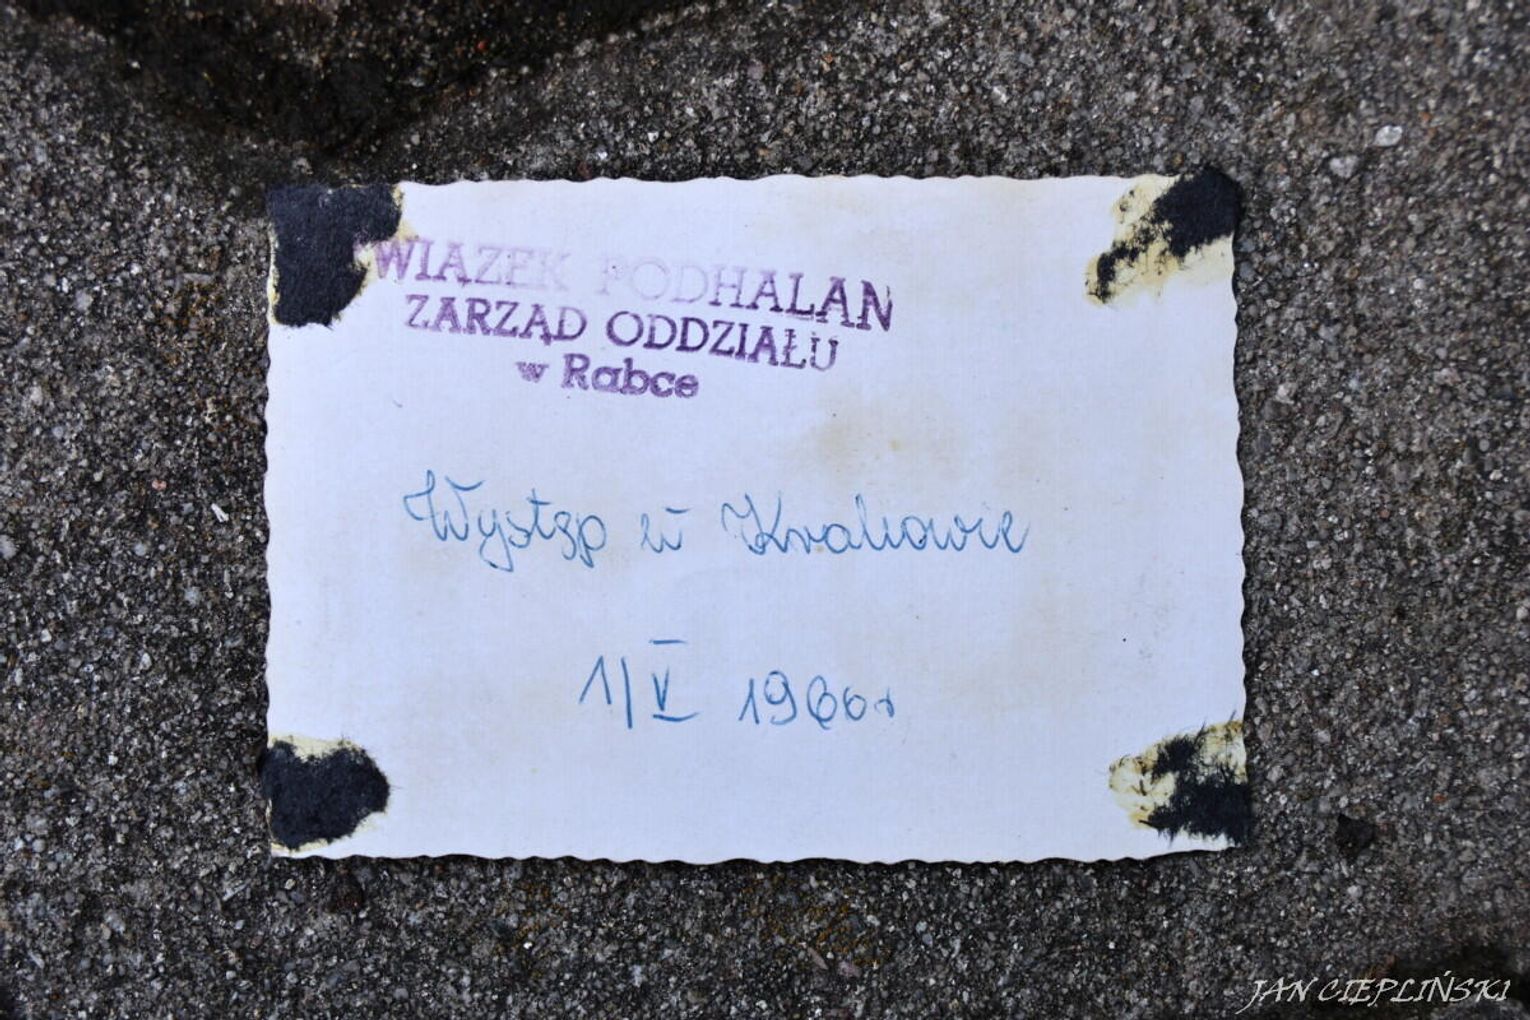 WIĄZEK PODHALAN
ZARZĄD ODDZIAŁU
w Rabce
Występ w Krakowie
1/V 1960r
JAN CIEPLIŃSKI